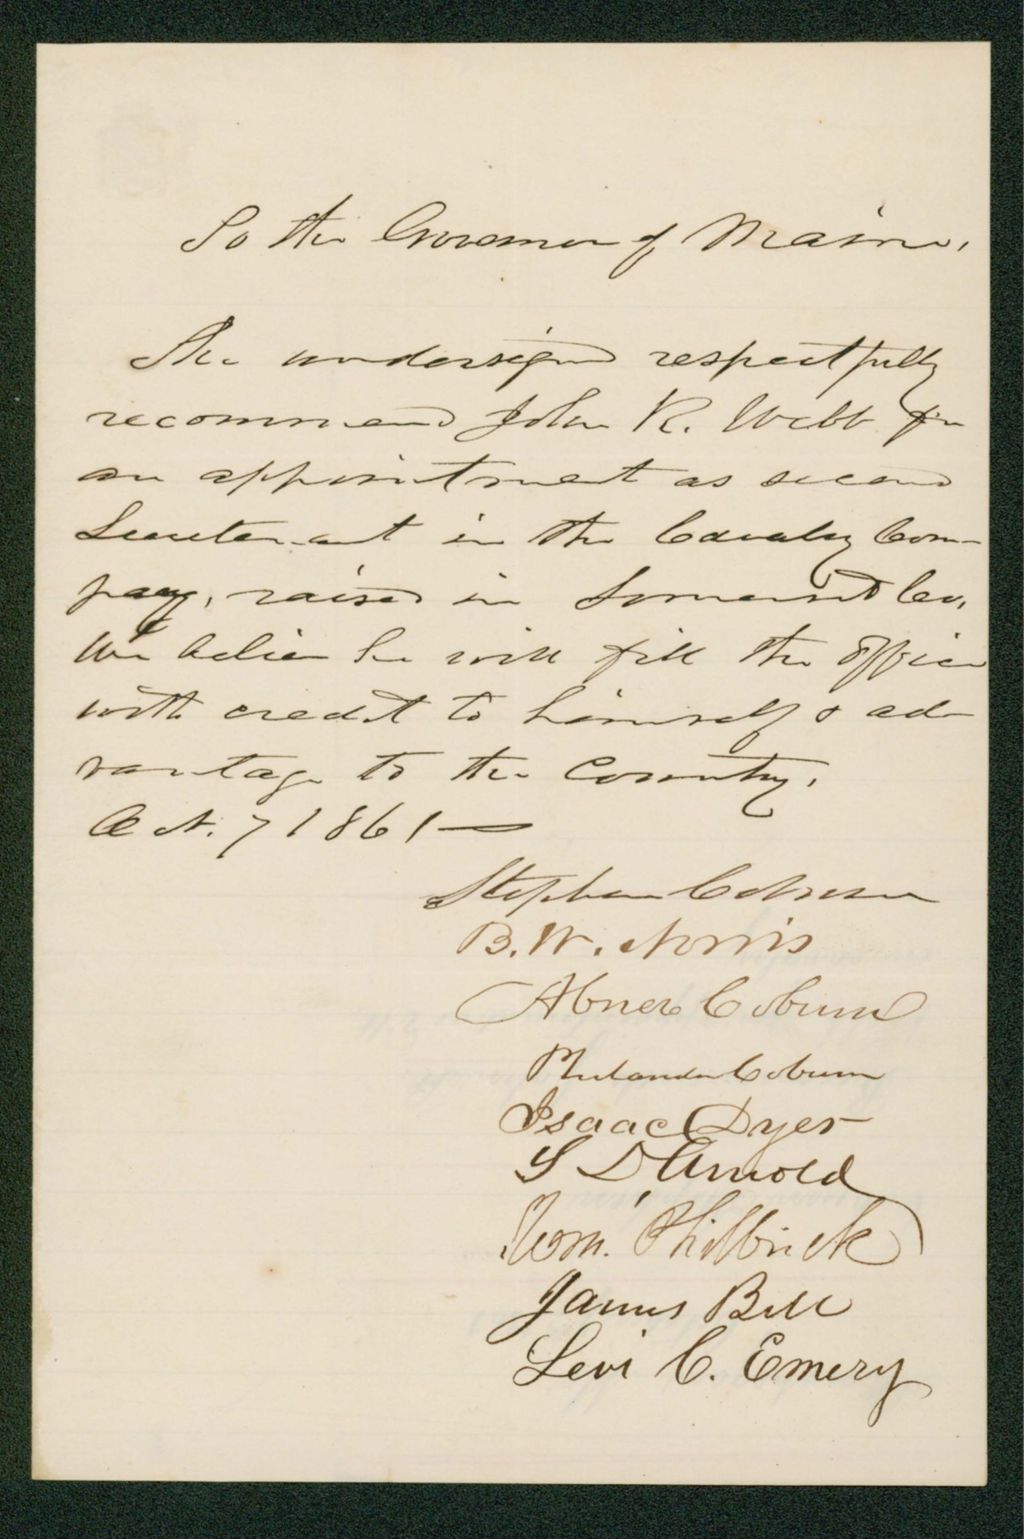 To the Governor of Maine,
The undersigned respectfully
recommend John R. Webb for
an appointment as second
Lieutenant in the Cavalry Com-
pany, raised in Somerset Co,
We believe he will fill the office
with credit to himself & ad-
vantage to the Country.
Oct. 7 1861 —
Stephen Coburn
B. W. Norris
Abner Coburn
Philander Coburn
Isaac Dyer
S D Arnold
Wm. Philbrick
James Bell
Levi C. Emery